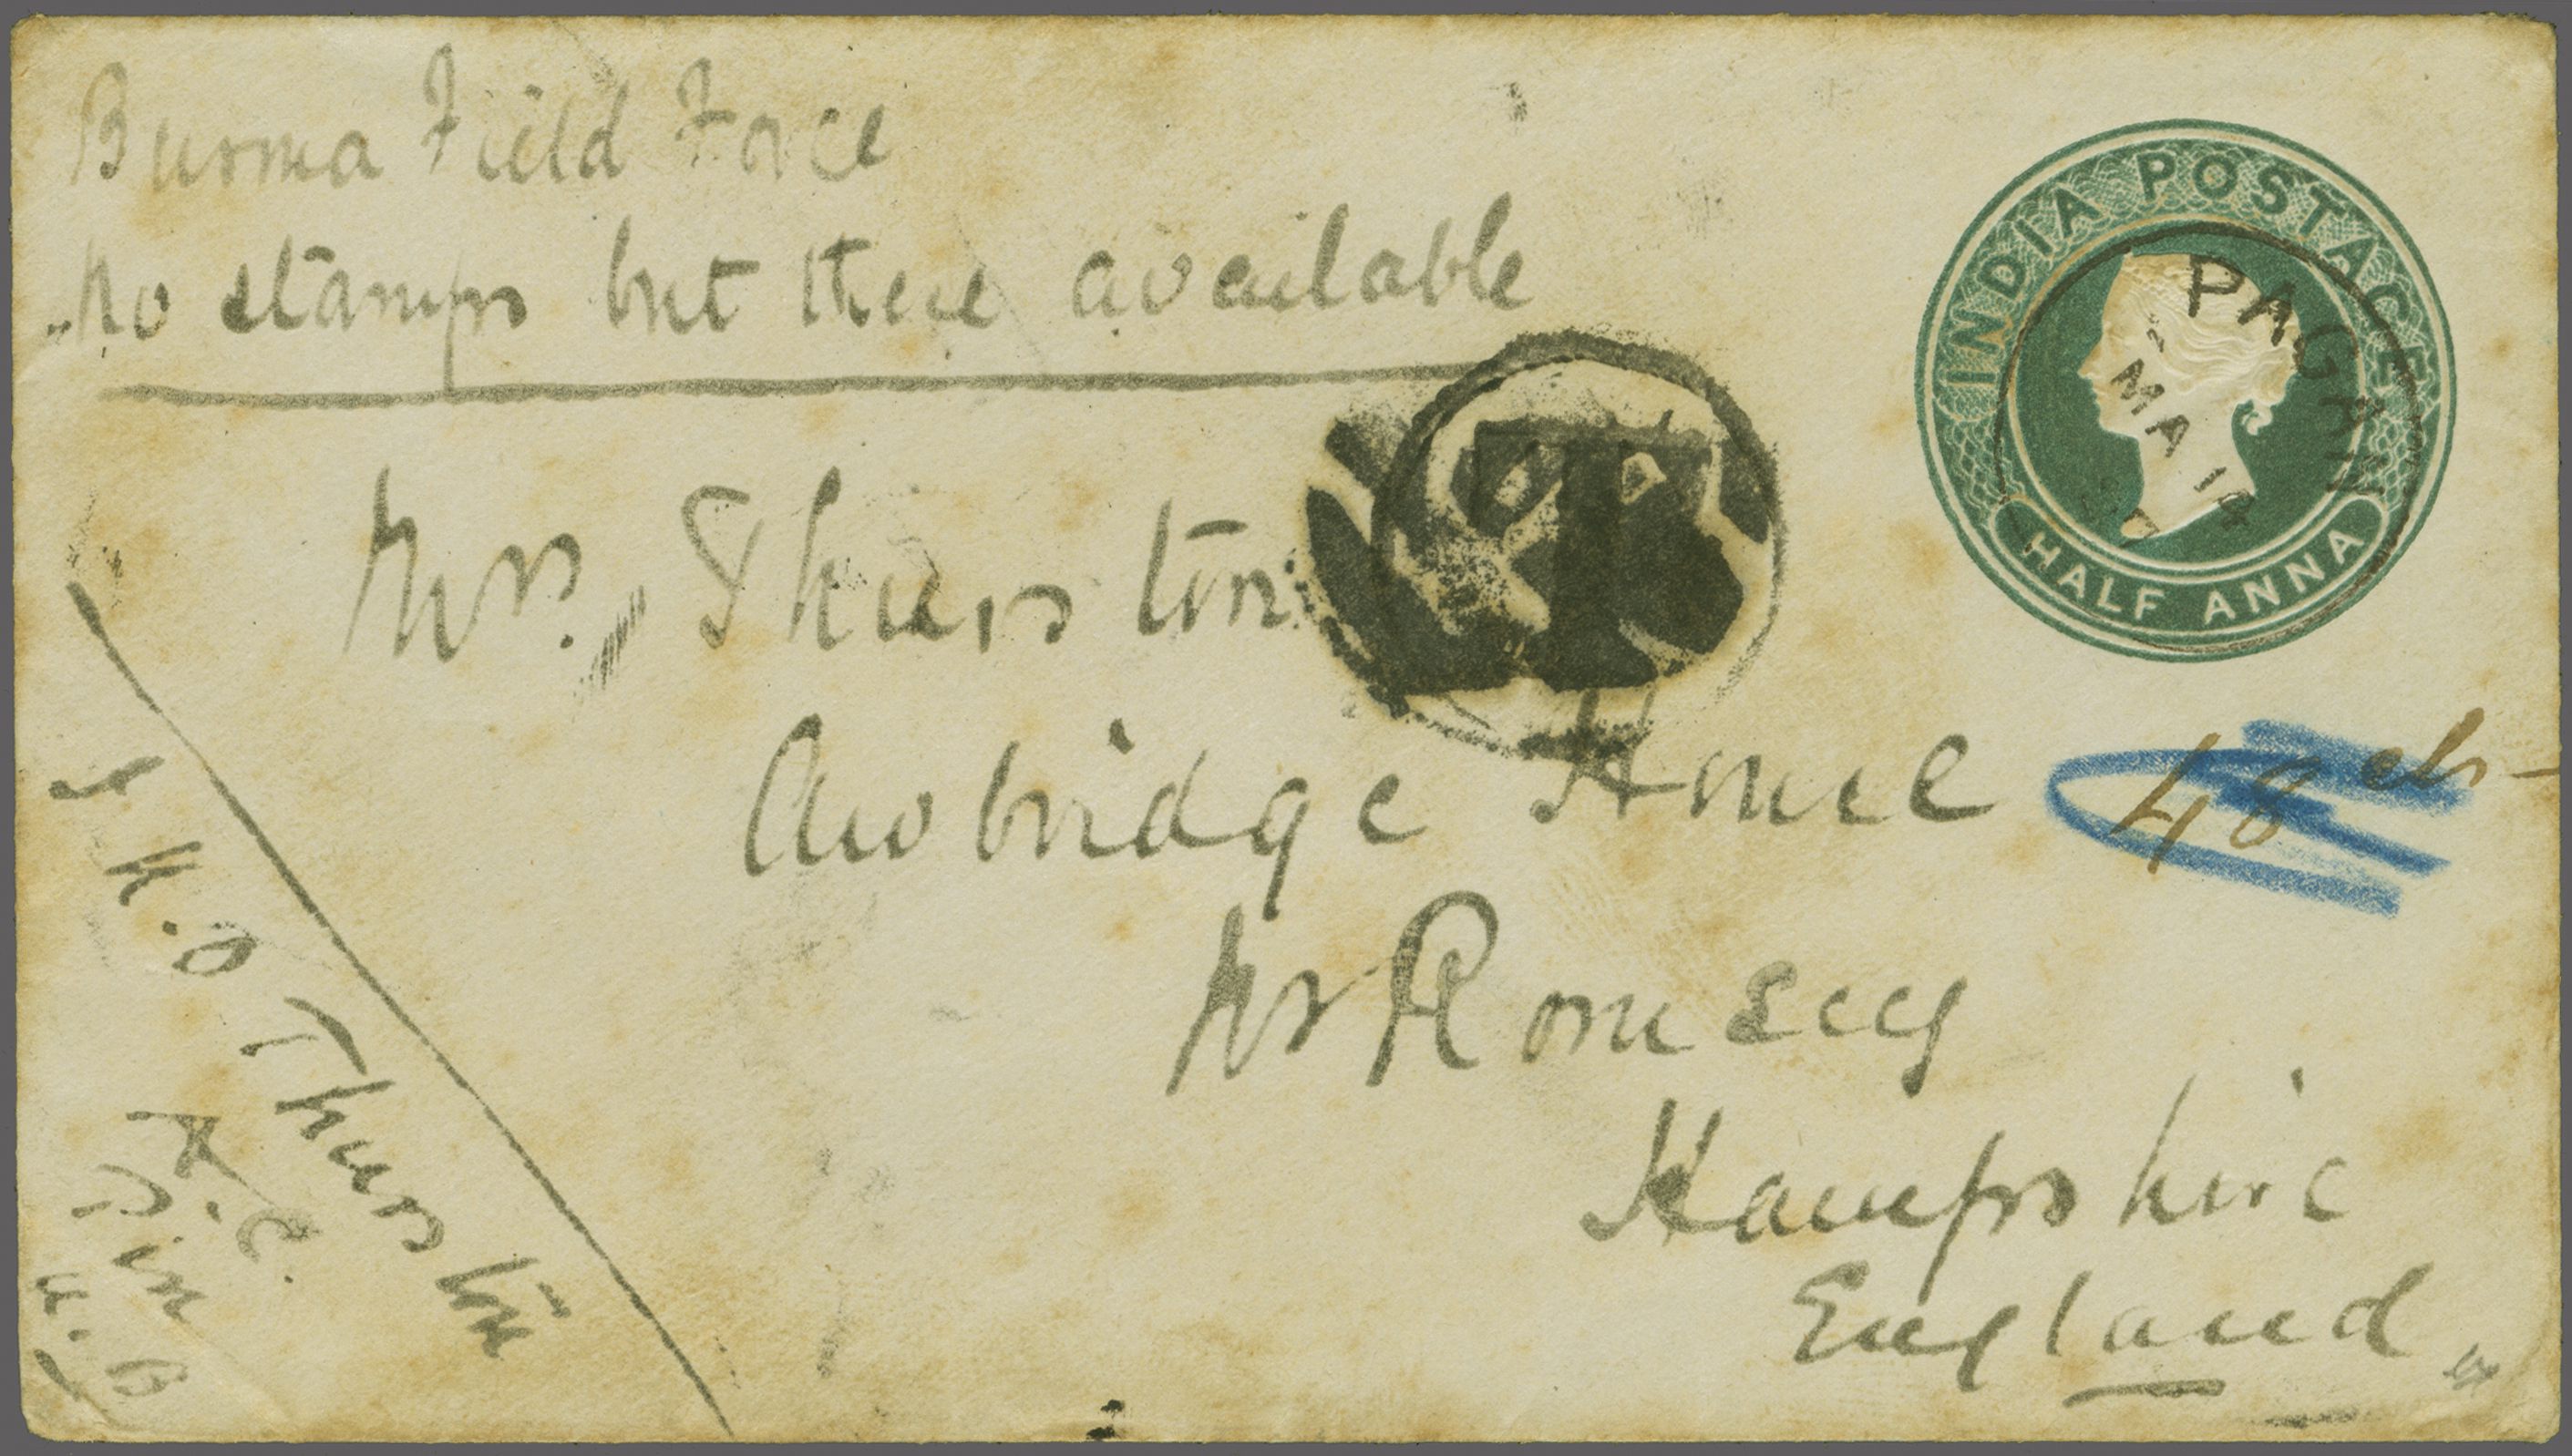 Burma Field Force
"No stamps but these available
INDIA POSTAGE
PAGAN
MA 14
HALF ANNA
T
Mrs. Thurston
Awbridge House
48 cts
Nr Romsey
Hampshire
England
J H. O Thurston